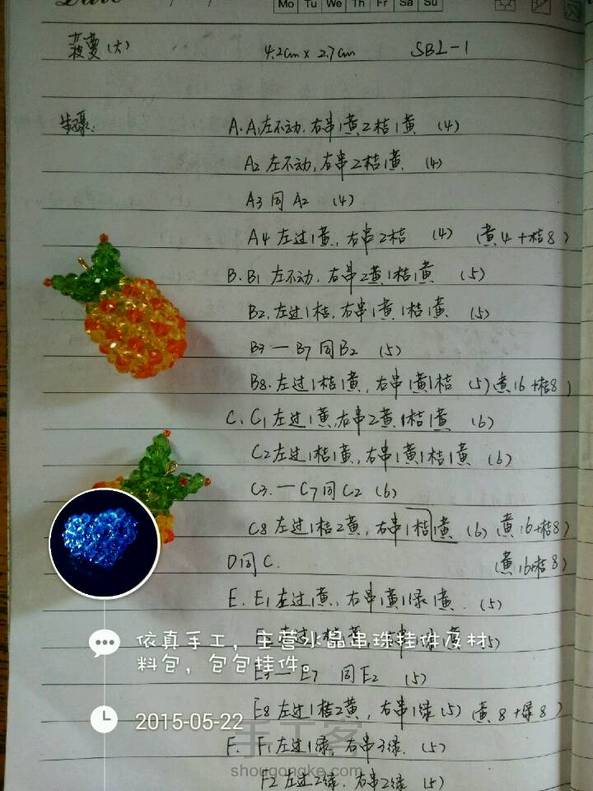 Mo Tu We Th Fr Sa Su
菠萝(大) 4.2cm x 2.7cm SBL-1
步骤: A. A1左不动,右串1黄2桔1黄 (4)
A2 左不动,右串2桔1黄 (4)
A3 同A2 (4)
A4 左过1黄,右串2桔 (4) (黄4+桔8)
B. B1 左不动,右串2黄1桔1黄 (5)
B2. 左过1桔,右串1黄1桔1黄 (5)
B3—B7 同B2 (5)
B8. 左过1桔1黄,右串1黄1桔 (5) (黄16+桔8)
C. C1 左过1黄,右串2黄1桔1黄 (6)
C2 左过1桔1黄,右串1黄1桔1黄 (6)
C3.—C7 同C2 (6)
C8 左过1桔2黄,右串1桔1黄 (6) (黄16+桔8)
D同C. (黄16+桔8)
E. E1 左过1黄,右串1黄1绿1黄. (5)
依真手工,主营水晶串珠挂件及材
料包,包包挂件。
E3—E7 同E2 (5)
2015-05-22
E8 左过1桔2黄,右串1绿(5) (黄8+绿8)
F. F1 左过1绿,右串3绿. (5)
手工客
shougongke.com
F2 左过2绿,右串2绿 (5)